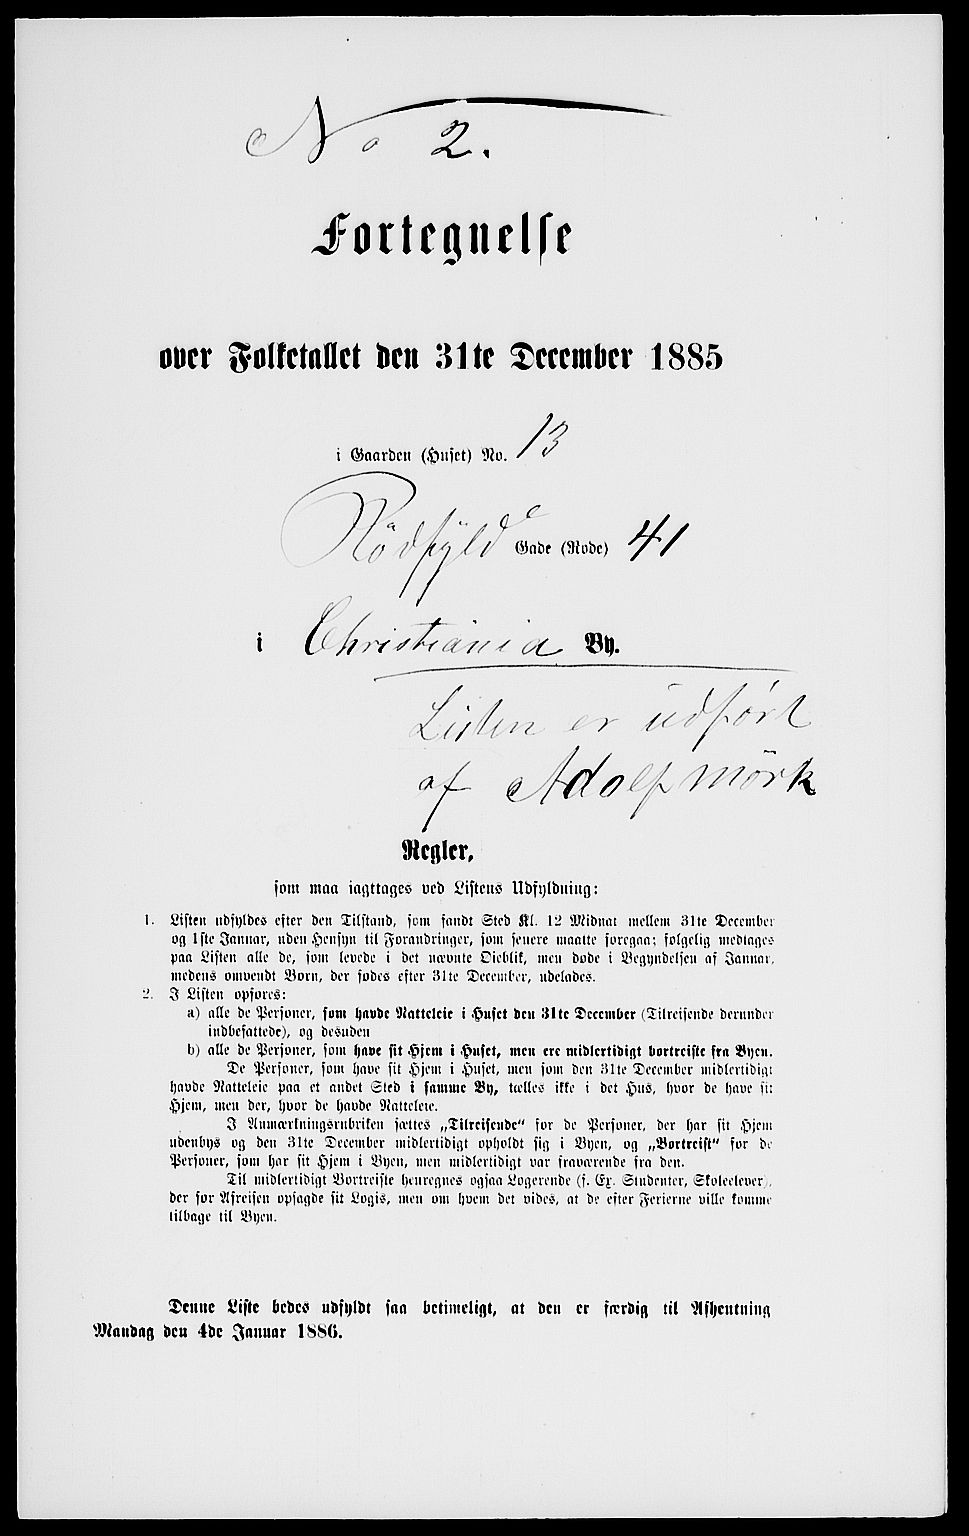 No 2.
Fortegnelse
over Folketallet den 31te December 1885
i Gaarden (Huset) No. 13
Rödfyld Gade (Rode) 41
i Christiania By.
Listen er udført
af Adolf Mörk
Regler,
som maa iagttages ved Listens Udfyldning:
1. Listen udfyldes efter den Tilstand, som fandt Sted Kl. 12 Midnat mellem 31te December
og 1ste Januar, uden Hensyn til Forandringer, som senere maatte foregaa; følgelig medtages
paa Listen alle de, som levede i det nævnte Øieblik, men døde i Begyndelsen af Januar,
medens omvendt Børn, der fødes efter 31te December, udelades.
2. I Listen opføres:
a) alle de Personer, som havde Natteleie i Huset den 31te December (Tilreisende derunder
indbefattede), og desuden
b) alle de Personer, som have sit Hjem i Huset, men ere midlertidigt bortreiste fra Byen.
De Personer, som have sit Hjem i Huset, men som den 31te December midlertidigt
havde Natteleie paa et andet Sted i samme By, tælles ikke i det Hus, hvor de have sit
Hjem, men der, hvor de havde Natteleie.
I Anmærkningsrubriken sættes „Tilreisende“ for de Personer, der har sit Hjem
udenbys og den 31te December midlertidigt opholdt sig i Byen, og „Bortreist“ for de
Personer, som har sit Hjem i Byen, men midlertidigt var fraværende fra den.
Til midlertidigt Bortreiste henregnes ogsaa Logerende (f. Ex. Studenter, Skoleelever),
der før Afreisen opsagde sit Logis, men om hvem det vides, at de efter Ferierne ville komme
tilbage til Byen.
Denne Liste bedes udfyldt saa betimeligt, at den er færdig til Afhentning
Mandag den 4de Januar 1886.